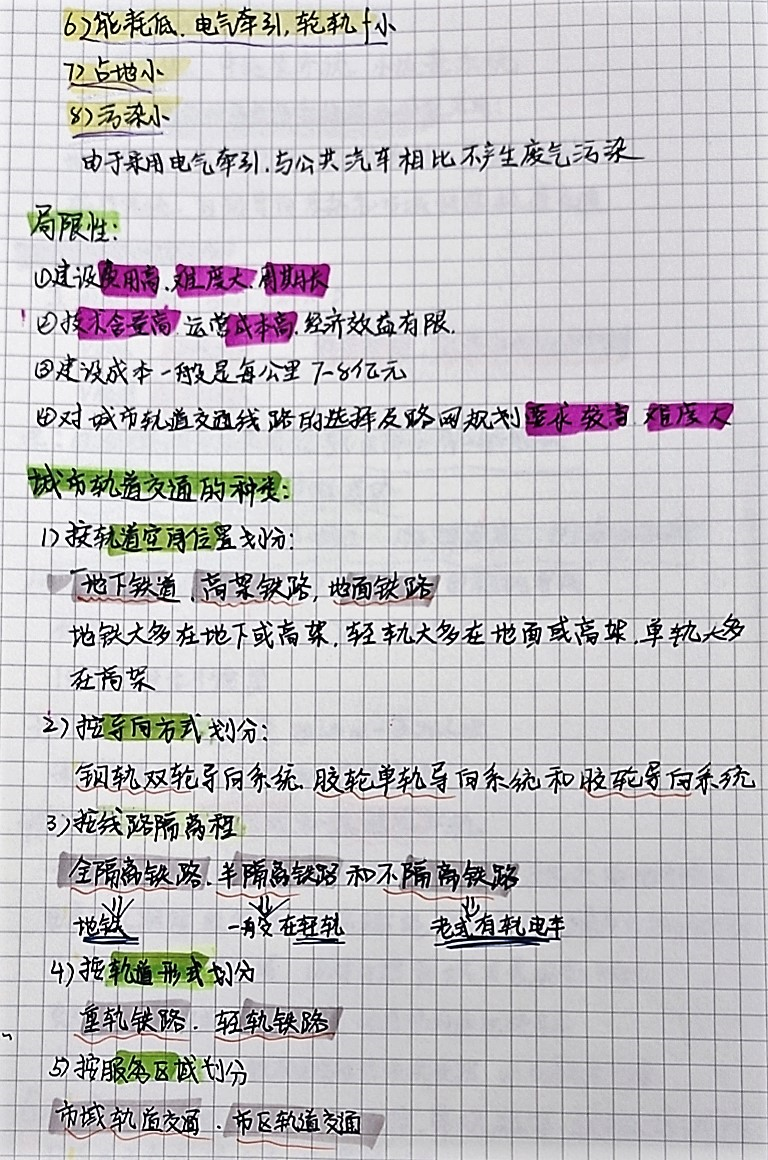 6)能耗低、电气牵引,轮轨f小
7)占地小
8)污染小
由于采用电气牵引,与公共汽车相比不产生废气污染
局限性:
①建设费用高、难度大、周期长
②技术含量高 运营成本高、经济效益有限.
③建设成本一般是每公里7-8亿元
④对城市轨道交通线路的选择及路网规划要求较高 难度大
城市轨道交通的种类:
1)按轨道空间位置划分:
地下铁道、高架铁路,地面铁路
地铁大多在地下或高架,轻轨大多在地面或高架,单轨大多
在高架
2)按导向方式划分:
钢轨双轮导向系统、胶轮单轨导向系统和胶轮导向系统
3)按线路隔离程
全隔离铁路、半隔离铁路和不隔离铁路
地铁 一般在轻轨 老式有轨电车
4)按轨道形式划分
重轨铁路、轻轨铁路
5)按服务区域划分
市域轨道交通、市区轨道交通